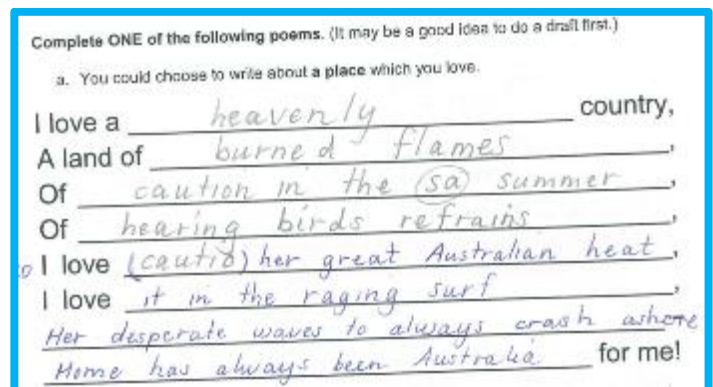 Complete ONE of the following poems. (It may be a good idea to do a draft first.)
a. You could choose to write about a place which you love.
I love a heavenly country,
A land of burned flames,
Of caution in the (sa) summer,
Of hearing birds refrains,
I love (cautio) her great Australian heat,
I love it in the raging surf,
Her desperate waves to always crash ashore
Home has always been Australia for me!